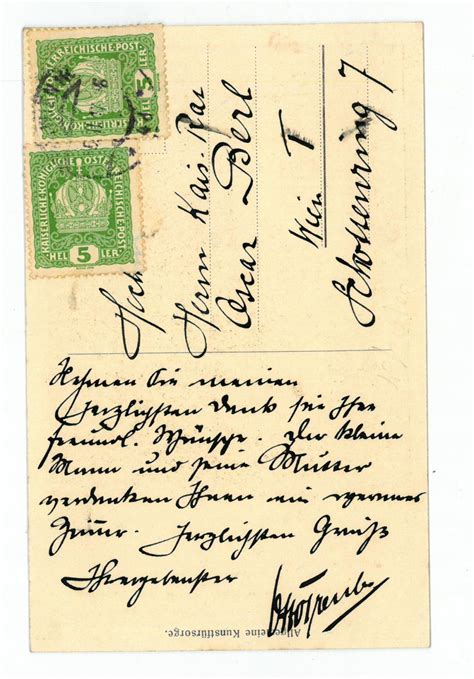 KAISERLICHE KÖNIGLICHE ÖSTERREICHISCHE POST
5
HELLER
KAISERLICHE KÖNIGLICHE ÖSTERREICHISCHE POST
5
HELLER
Herrn Kais. Rat
Oscar Berl
Wien I
Schottenring 7
Nehmen Sie meinen
herzlichsten Dank für Ihre
freundl. Wünsche. Der kleine
Mann und seine Mutter
verdanken Ihnen ein warmes
Zimmer. Herzlichsten Gruß
Ihr ergebenster
Allgemeine Kunstfürsorge.